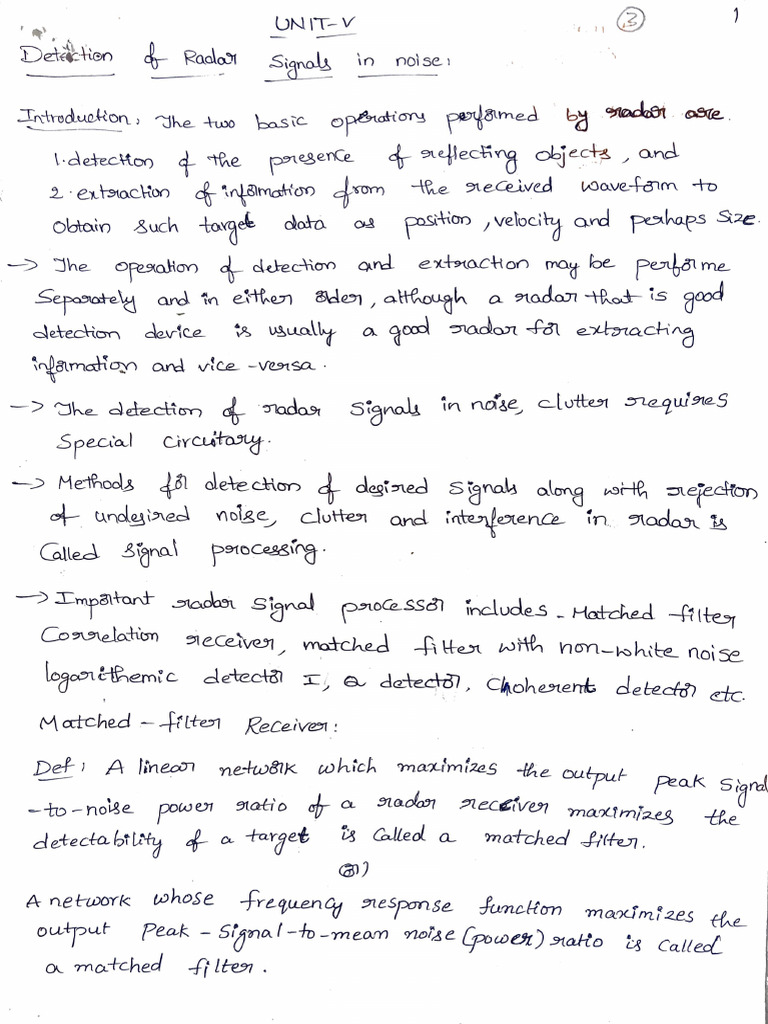 UNIT-V
3
1
Detection of Radar Signals in noise:
Introduction: The two basic operations performed by radar are
1. detection of the presence of reflecting objects, and
2. extraction of information from the received waveform to
obtain such target data as position, velocity and perhaps size.
-> The operation of detection and extraction may be performe
Separately and in either order, although a radar that is good
detection device is usually a good radar for extracting
information and vice-versa.
-> The detection of radar signals in noise, clutter requires
Special circutary.
-> Methods for detection of desired signals along with rejection
of undesired noise, clutter and interference in radar is
called signal processing.
-> Important radar signal processor includes - Matched filter
Correlation receiver, matched filter with non-white noise
logarithemic detector I, Q detector, Choherent detector etc.
Matched-filter Receiver:
Def: A linear network which maximizes the output peak signal
-to-noise power ratio of a radar receiver maximizes the
detectability of a target is called a matched filter.
(or)
A network whose frequency response function maximizes the
output Peak-Signal-to-mean noise (power) ratio is called
a matched filter.